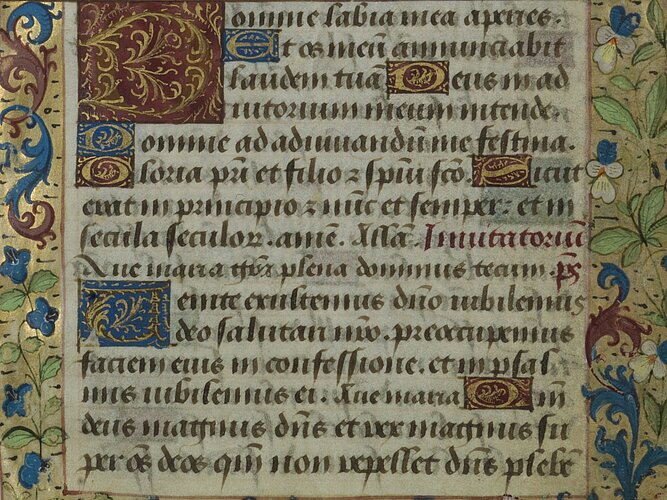 Domine labia mea aperies.
Et os meū annunciabit
laudem tuā Deus in ad
iutorium meum intende.
Domine ad adiuuandū me festina.
Gloria pr̄i et filio ⁊ spūi sc̄o. Sicut
erat in principio ⁊ nūc et semper: et in
secula seculor̄. amē. Allā. Inuitatoriū
Aue maria gr̄a plena dominus tecum. p̄s
Uenite exultemus dn̄o iubilemus
deo salutari nr̄o. preoccupemus
faciem eius in confessione. et in psal
mis iubilemus ei. Aue maria Qm̄
deus magnus dn̄s et rex magnus su
per oēs deos qm̄ non repellet dn̄s plebē